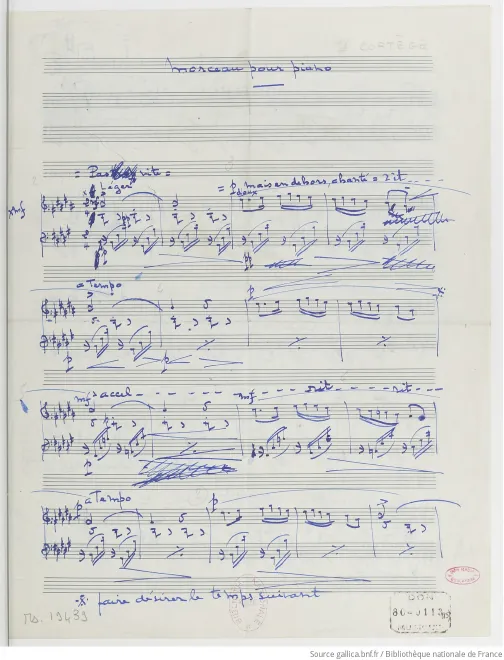 CORTÈGE
morceau pour piano
= Pas vite =
Léger
= p mais en dehors, chanté =
doux
mf
pp
pp
a Tempo
p
p
p
mf accel - - - - - mf - - - - rit - - - - rit - - -
p
p a Tempo
p
faire désirer le temps suivant
Ms. 19439
Source gallica.bnf.fr / Bibliothèque nationale de France